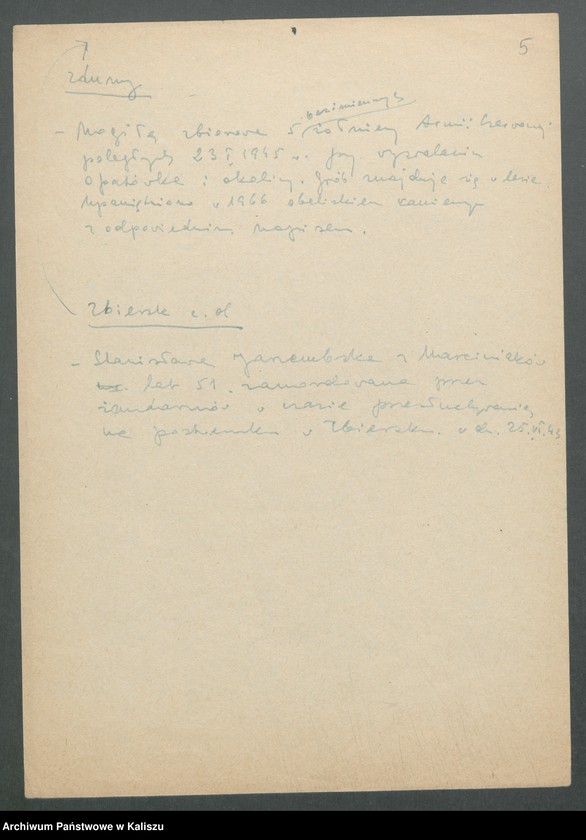 5
Zduny
bezimiennych
- Mogiła zbiorowa 5 żołnierzy Armii Czerwonej
poległych 23 I 1945 r. przy wyzwalaniu
Opatówka i okolicy. Grób znajduje się w lesie
Upamiętniono w 1966 obeliskiem kamiennym
z odpowiednim napisem.
Zbiersk c.d
- Stanisława Jarzembska z Marciniaków
lat 51. zamordowana przez
żandarmów w czasie przesłuchiwania
na posterunku w Zbiersku. w dn. 25.VI.43
Archiwum Państwowe w Kaliszu